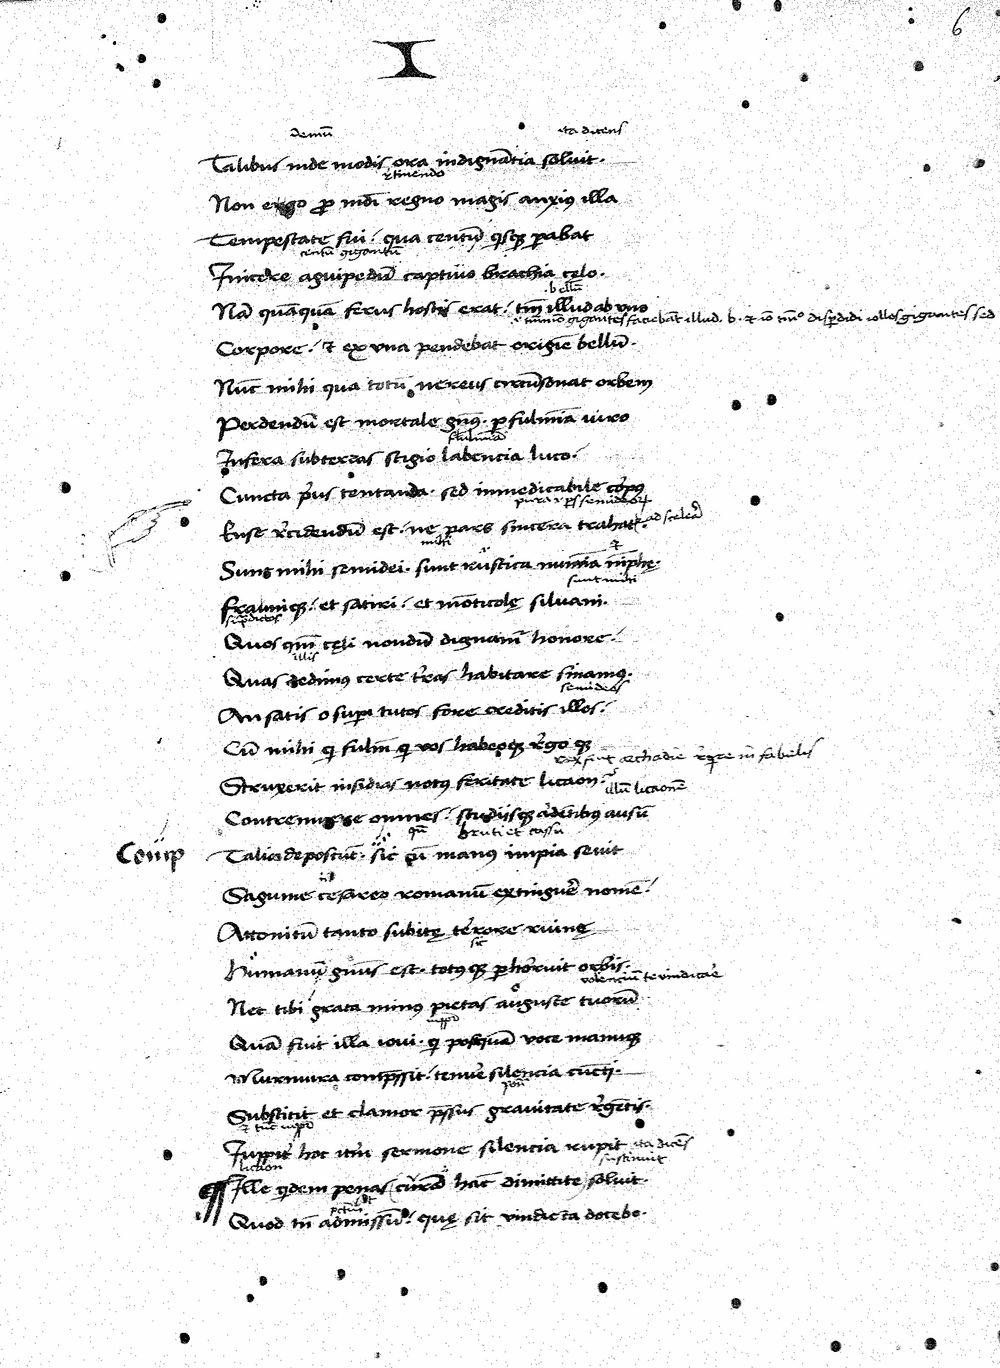 6
I
demū ita dicens
Talibus inde modis ora indignātia soluit·
r̄tinendo
Non ergo ꝓ mdī regno magis anxiꝰ illa
Tempestate fui: qua centū qͥsqꝫ ꝑabat
centū gigantū
Inicere aguipedū captiuo brachia celo·
·bellū
Nā quāquā ferus hostis erat: tm̄ illud ab vno
gigantes faciebāt illud. b. gigantes sed
Corpore: et ex vna pendebat origīe bellū·
Nūc mihi qua totū nereus circūsonat orbem
Perdendū est mortale gn̄ꝰ· ꝑ fulmīa iuro
flumina
Infera sub terras stigio labencia luco·
Cuncta pͥus tentanda· sed inmedicabile corpꝰ
Ense r̄cidendū est: ne pars sincera trahat̄·
mihi
Sunt mihi semidei· sunt rustica numīa nīphę·
sunt mihi
Fauniqꝫ: et satiri: et mōticolę siluani·
supͣdictos
Quos qm̄ cęli nondū dignam̄ honore:
illis
Quas dedimꝰ certe t̄ras habitare sinamꝰ·
semideos
An satis o supͥ tutos fore creditis illos:
Cū mihi qͥ fulm̄ qͥ vos habeoqꝫ r̄goqꝫ
rex fuit archadie in fabulis
Struxerit insidias notus feritate licaon:
illū licaonē
Contremuere omnes: studiisqꝫ ardētibꝰ ausū
bruti et cassii
Comp
Talia deposcūt· sic cū manꝰ impia seuit
Saguine cesareo romanū extinguēr̄ nomē:
Attonitū tanto subitę terrore ruinę
sic
Humanū genus est· totꝰqꝫ ꝑhorruit orbis·
Nec tibi grata minꝰ pietas auguste tuorū
iuppͥ
Quā fuit illa ioui· qͥ postquā voce manuqꝫ
Murmura compͤssit: tenuēr̄ silencia cūcti·
Substitit et clamor pͤssus grauitate r̄gētis·
Iuppit̄ hoc itēr̄ sermone silencia rupit ita dicēs
licaon sustinuit
Ille qͥdem penas (curā hāc dimittite) soluit·
Quod tn̄ admissū: quę sit vindicta docebo·